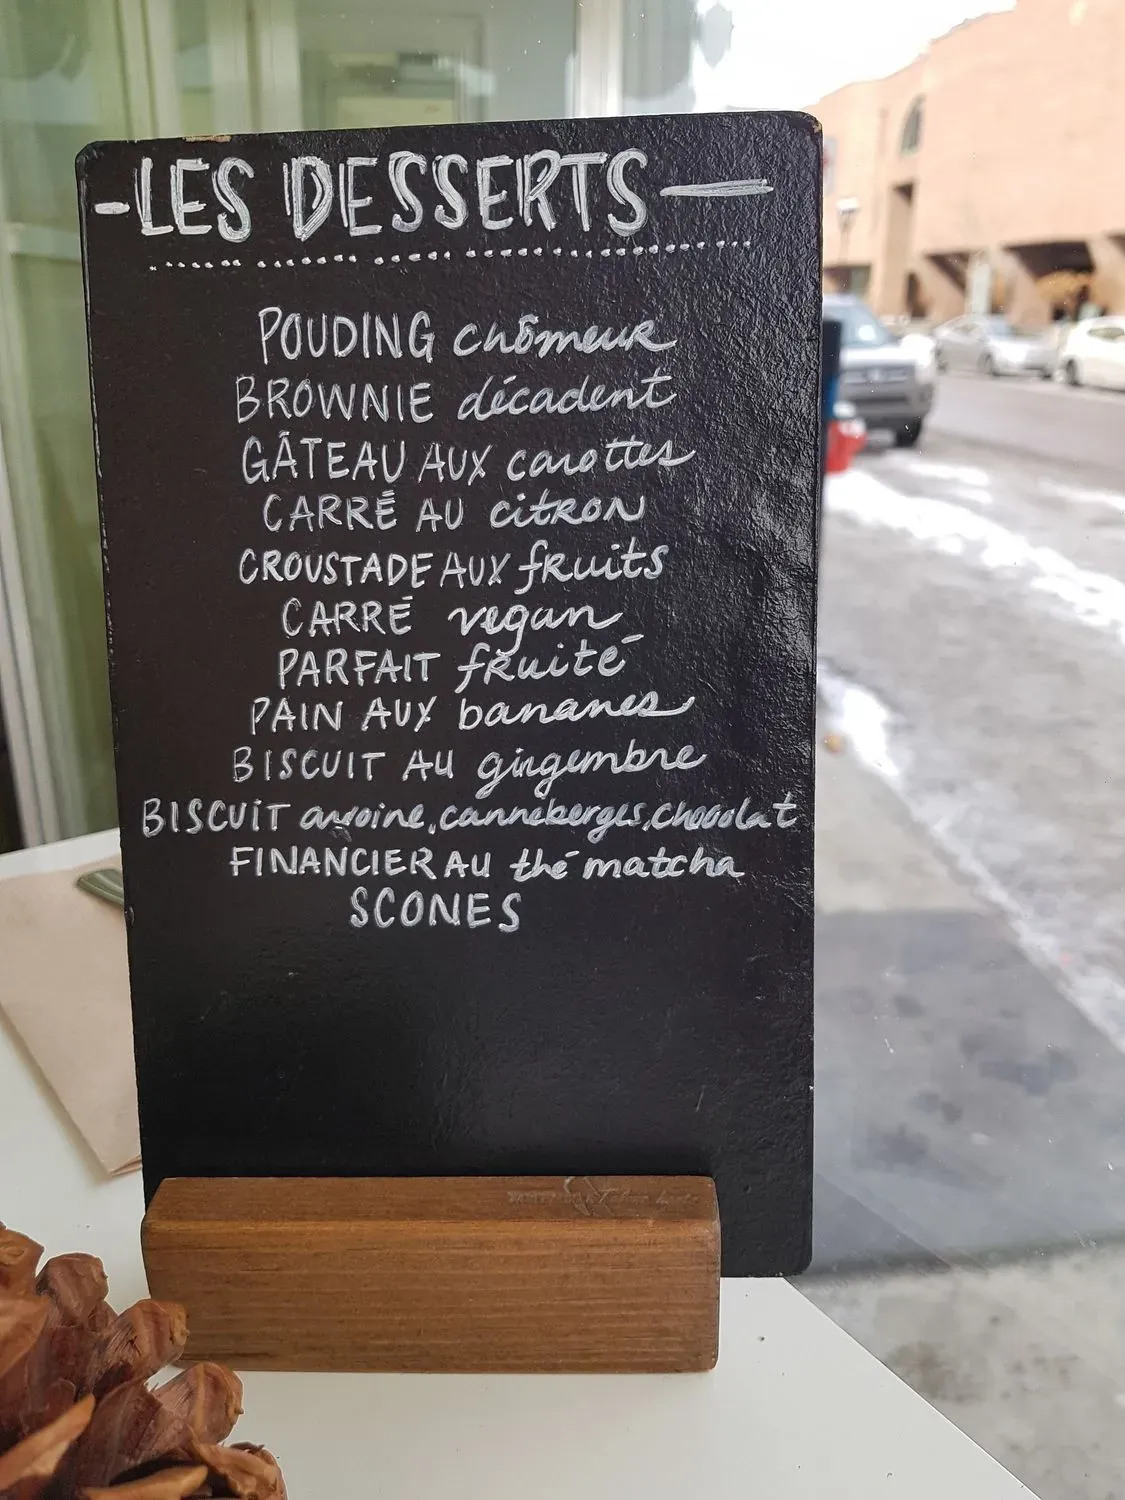 - LES DESSERTS —
POUDING chômeur
BROWNIE décadent
GÂTEAU AUX carottes
CARRÉ AU citron
CROUSTADE AUX fruits
CARRÉ vegan
PARFAIT fruité
PAIN AUX bananes
BISCUIT AU gingembre
BISCUIT avoine, canneberges, chocolat
FINANCIER AU thé matcha
SCONES